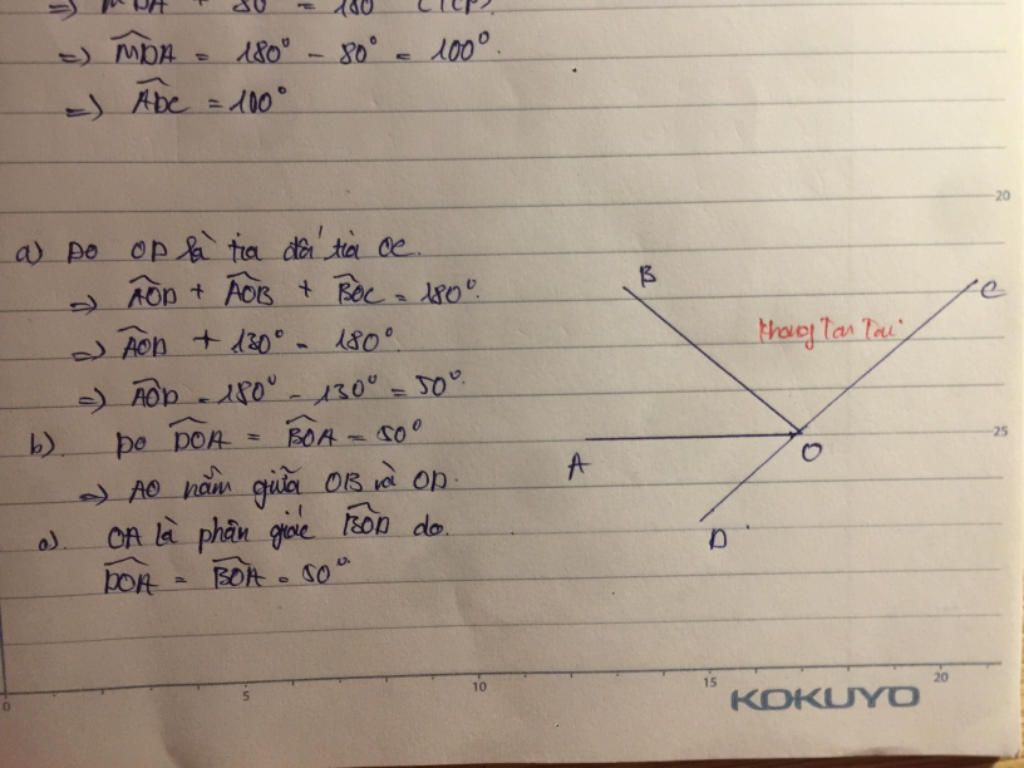 => MDA + 80 = 180 (TCP)
=> MDA = 180° - 80° = 100°.
=> ADC = 100°
20
a) DO OD là tia đối tia OC.
=> AOD + AOB + BOC = 180°.
=> AOD + 130° = 180°.
=> AOD = 180° - 130° = 50°.
b). DO DOA = BOA = 50°
=> AO nằm giữa OB và OD.
c). OA là phân giác BOD do.
DOA = BOA = 50°
B
C
25
O
A
D
0 5 10 15 20
KOKUYO